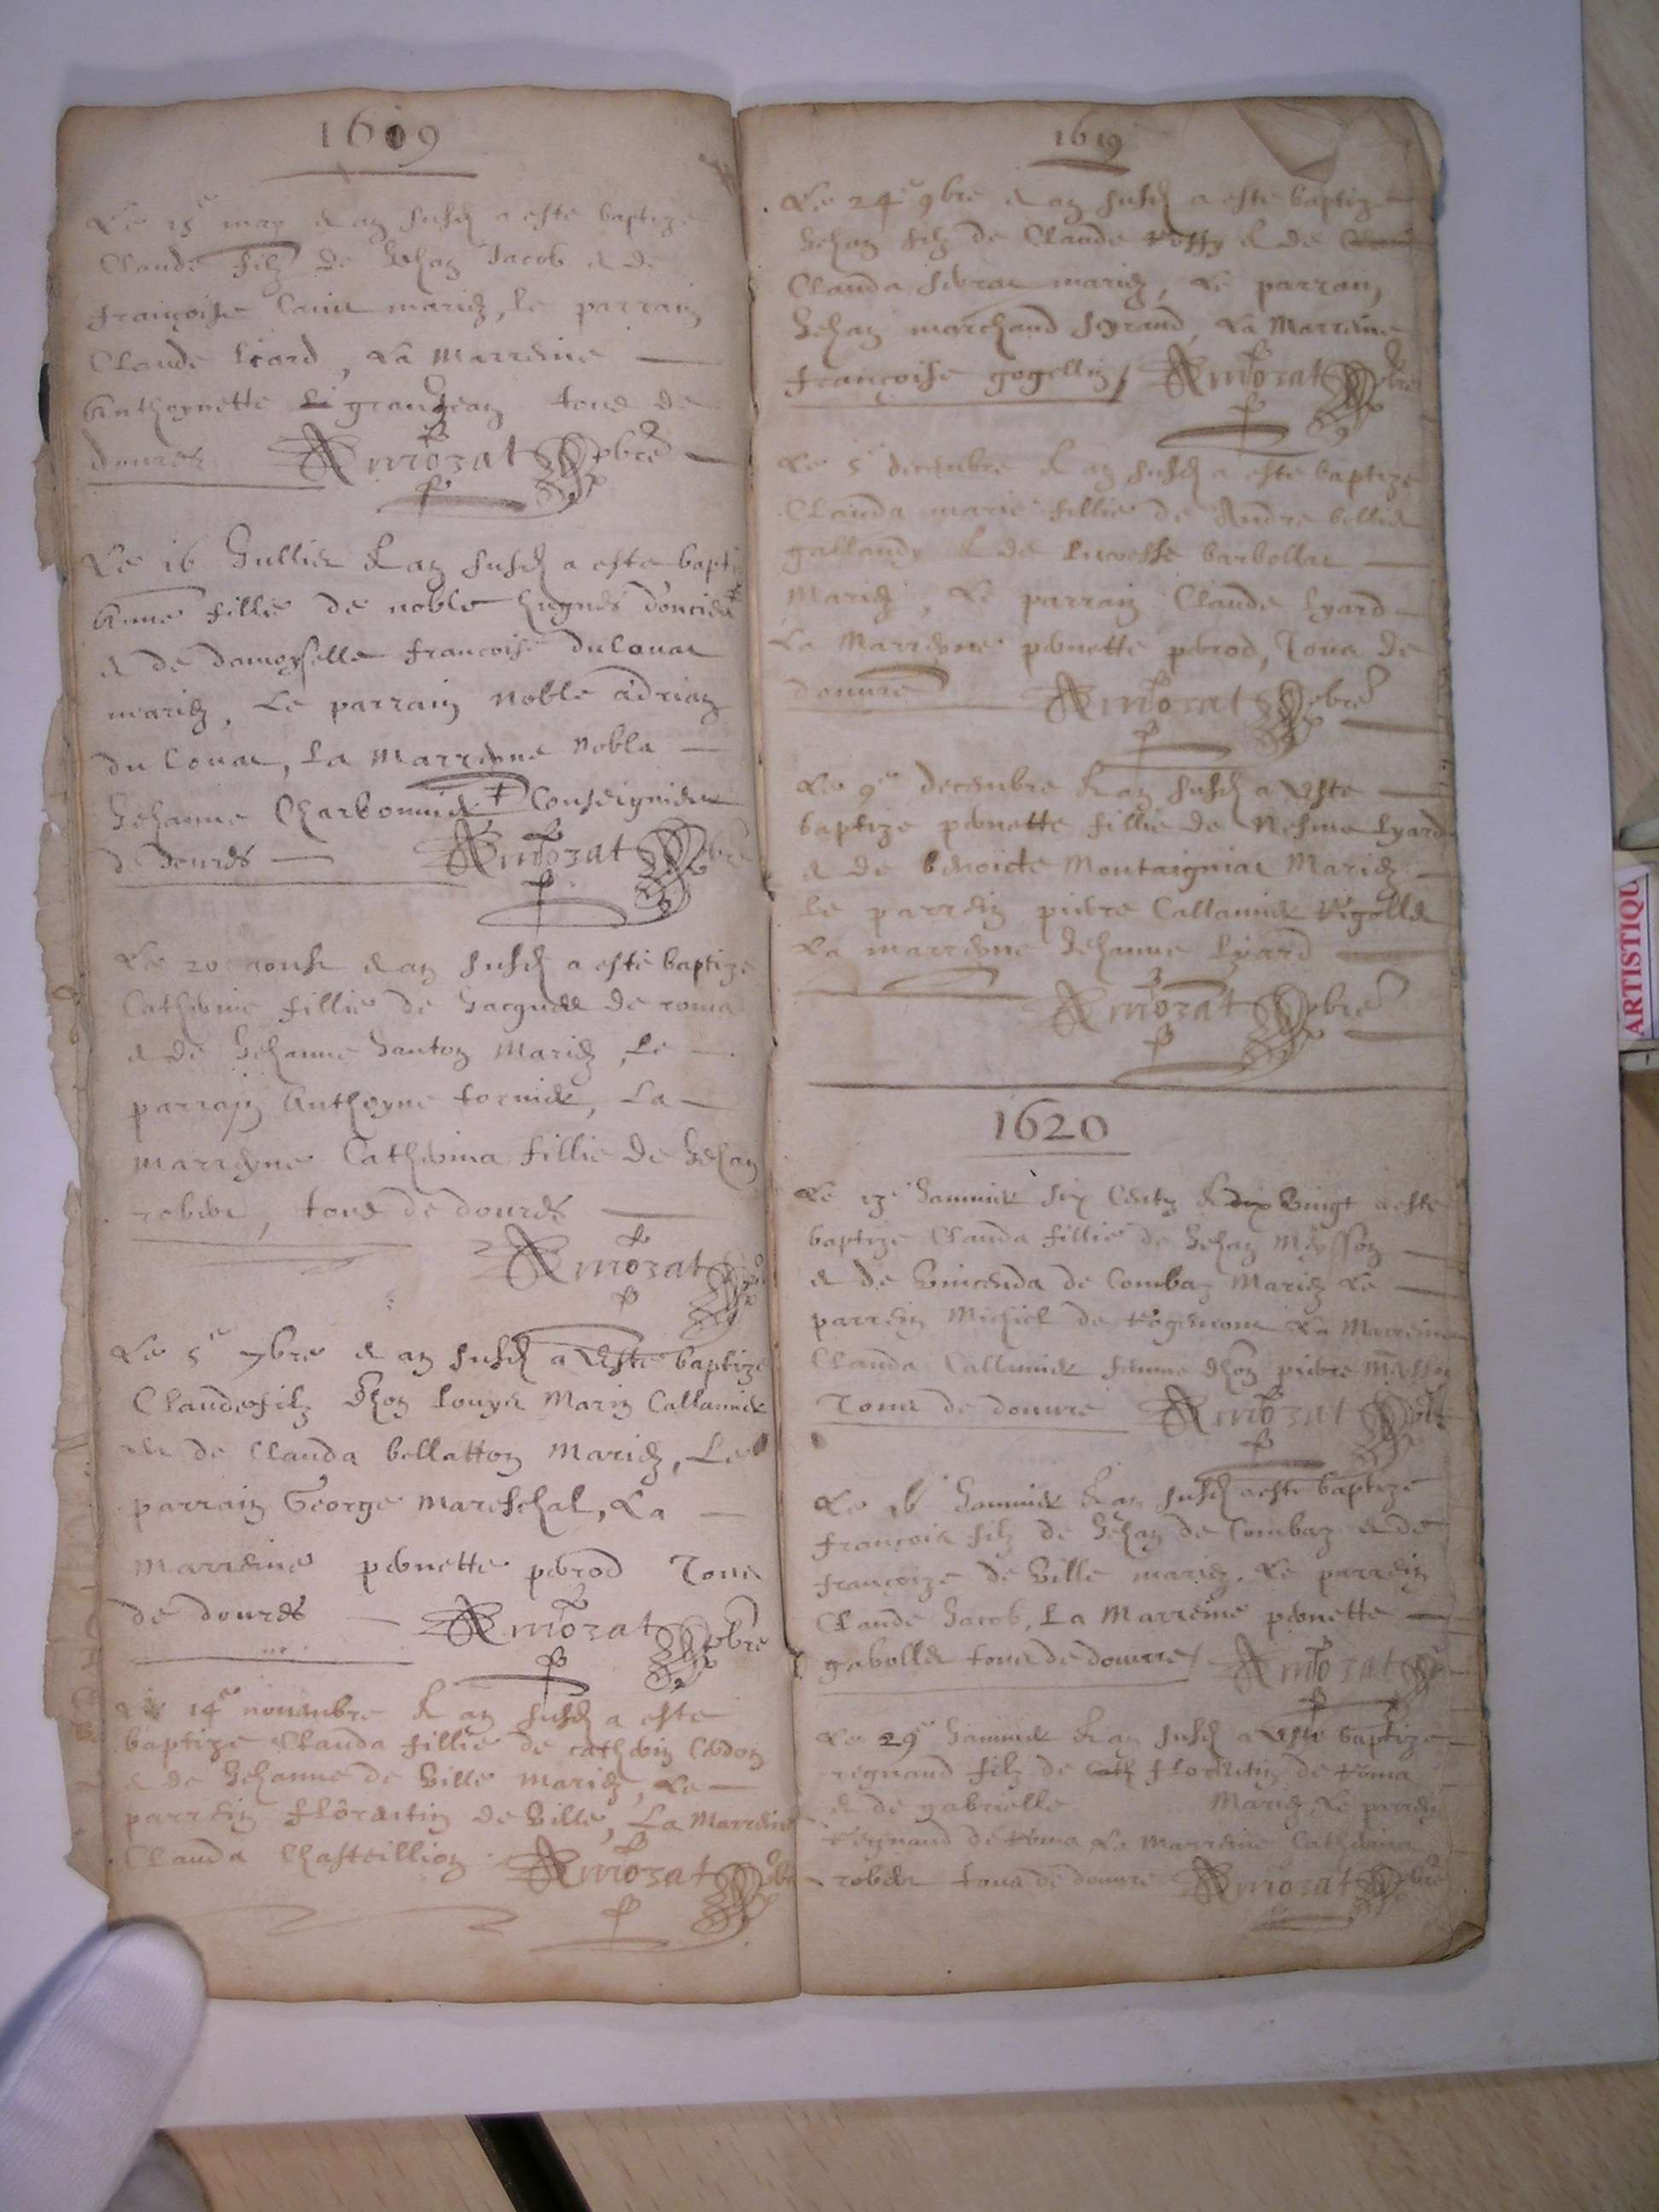 1609
Le 15e may & an susd a este baptize
Claude filz de Jehan Jacob & de
françoise mariez, le parrain
Claude Liard, La Marreine
Anthoynette granjean tous de
douvres Amozat pbre
Le 16 Jullier & an susd a este bapti
Anne fillie de noble hugues doncieu
& de damoyselle francoise du Louat
mariez, Le parrain Noble adrian
du Louat, La Marreyne Nobla
Jehanne Charbonnier
de douvres Amozat pbre
Le 20 aoust & an susd a este baptize
Catherine fillie de Jacques de roma
& de Jehanne Janton Mariez, Le
parrain Anthoyne tornier, La
Marreyne Catherina fillie de Jehan
robert, tous de douvres
Amozat
Le 5e 7bre & an susd a este baptize
Claude filz Louys Marin Callamier
& de Clauda bellatton Mariez, Le
parrain George Mareschal, La
Marreine pernette perrod Tous
de douvres Amozat pbre
Le 14e novembre & an susd a este
baptize Clauda fillie de cathein
& de Jehanne de Ville Mariez, Le
parrein fflorentin de Ville, La Marreine
Clauda Chasteillion Amozat pbre
1619
Le 24e 9bre & an susd a este baptize
Jehan filz de Claude & de
Clauda mariez, Le parrain
Jehan marchand La Marreine
françoise gogellin Amozat pbre
Le 5e decembre & an susd a este baptize
Clauda marie fillie de Andre bellier
gallandy & de Lucresse barbollat
Mariez, Le parrain Claude Lyard
La Marreyne pernette perrod, Tous de
douvre Amozat pbre
Le 9e decembre & an susd a este
baptize pernette fillie de Nesme Lyard
& de benoicte Montaigniat Mariez
Le parrein pierre Callamier Rigollet
La marreyne Jehanne Lyard
Amozat pbre
1620
Le 13e Janvier six Centz & vingt a este
baptize Clauda fillie de Jehan Meysson
& de Vincenda de Comba Mariez Le
parrein Michiel de Rogemont La Marreine
Clauda Callamier femme pierre Meysson
Tous de douvre Amozat pbre
Le 16 Janvier & an susd a este baptize
françois filz de Jehan de Comba & de
françoize de Ville mariez, Le parrein
Claude Jacob, La Marreine pernette
gabollet tous de douvre Amozat
Le 29e Janvier & an susd a este baptize
regnaud filz de fflorentin de Roma
& de gabrielle Mariez, Le parrein
Reynaud de Roma La Marreine Catherina
robert tous de douvre Amozat pbre
ARTISTIQU